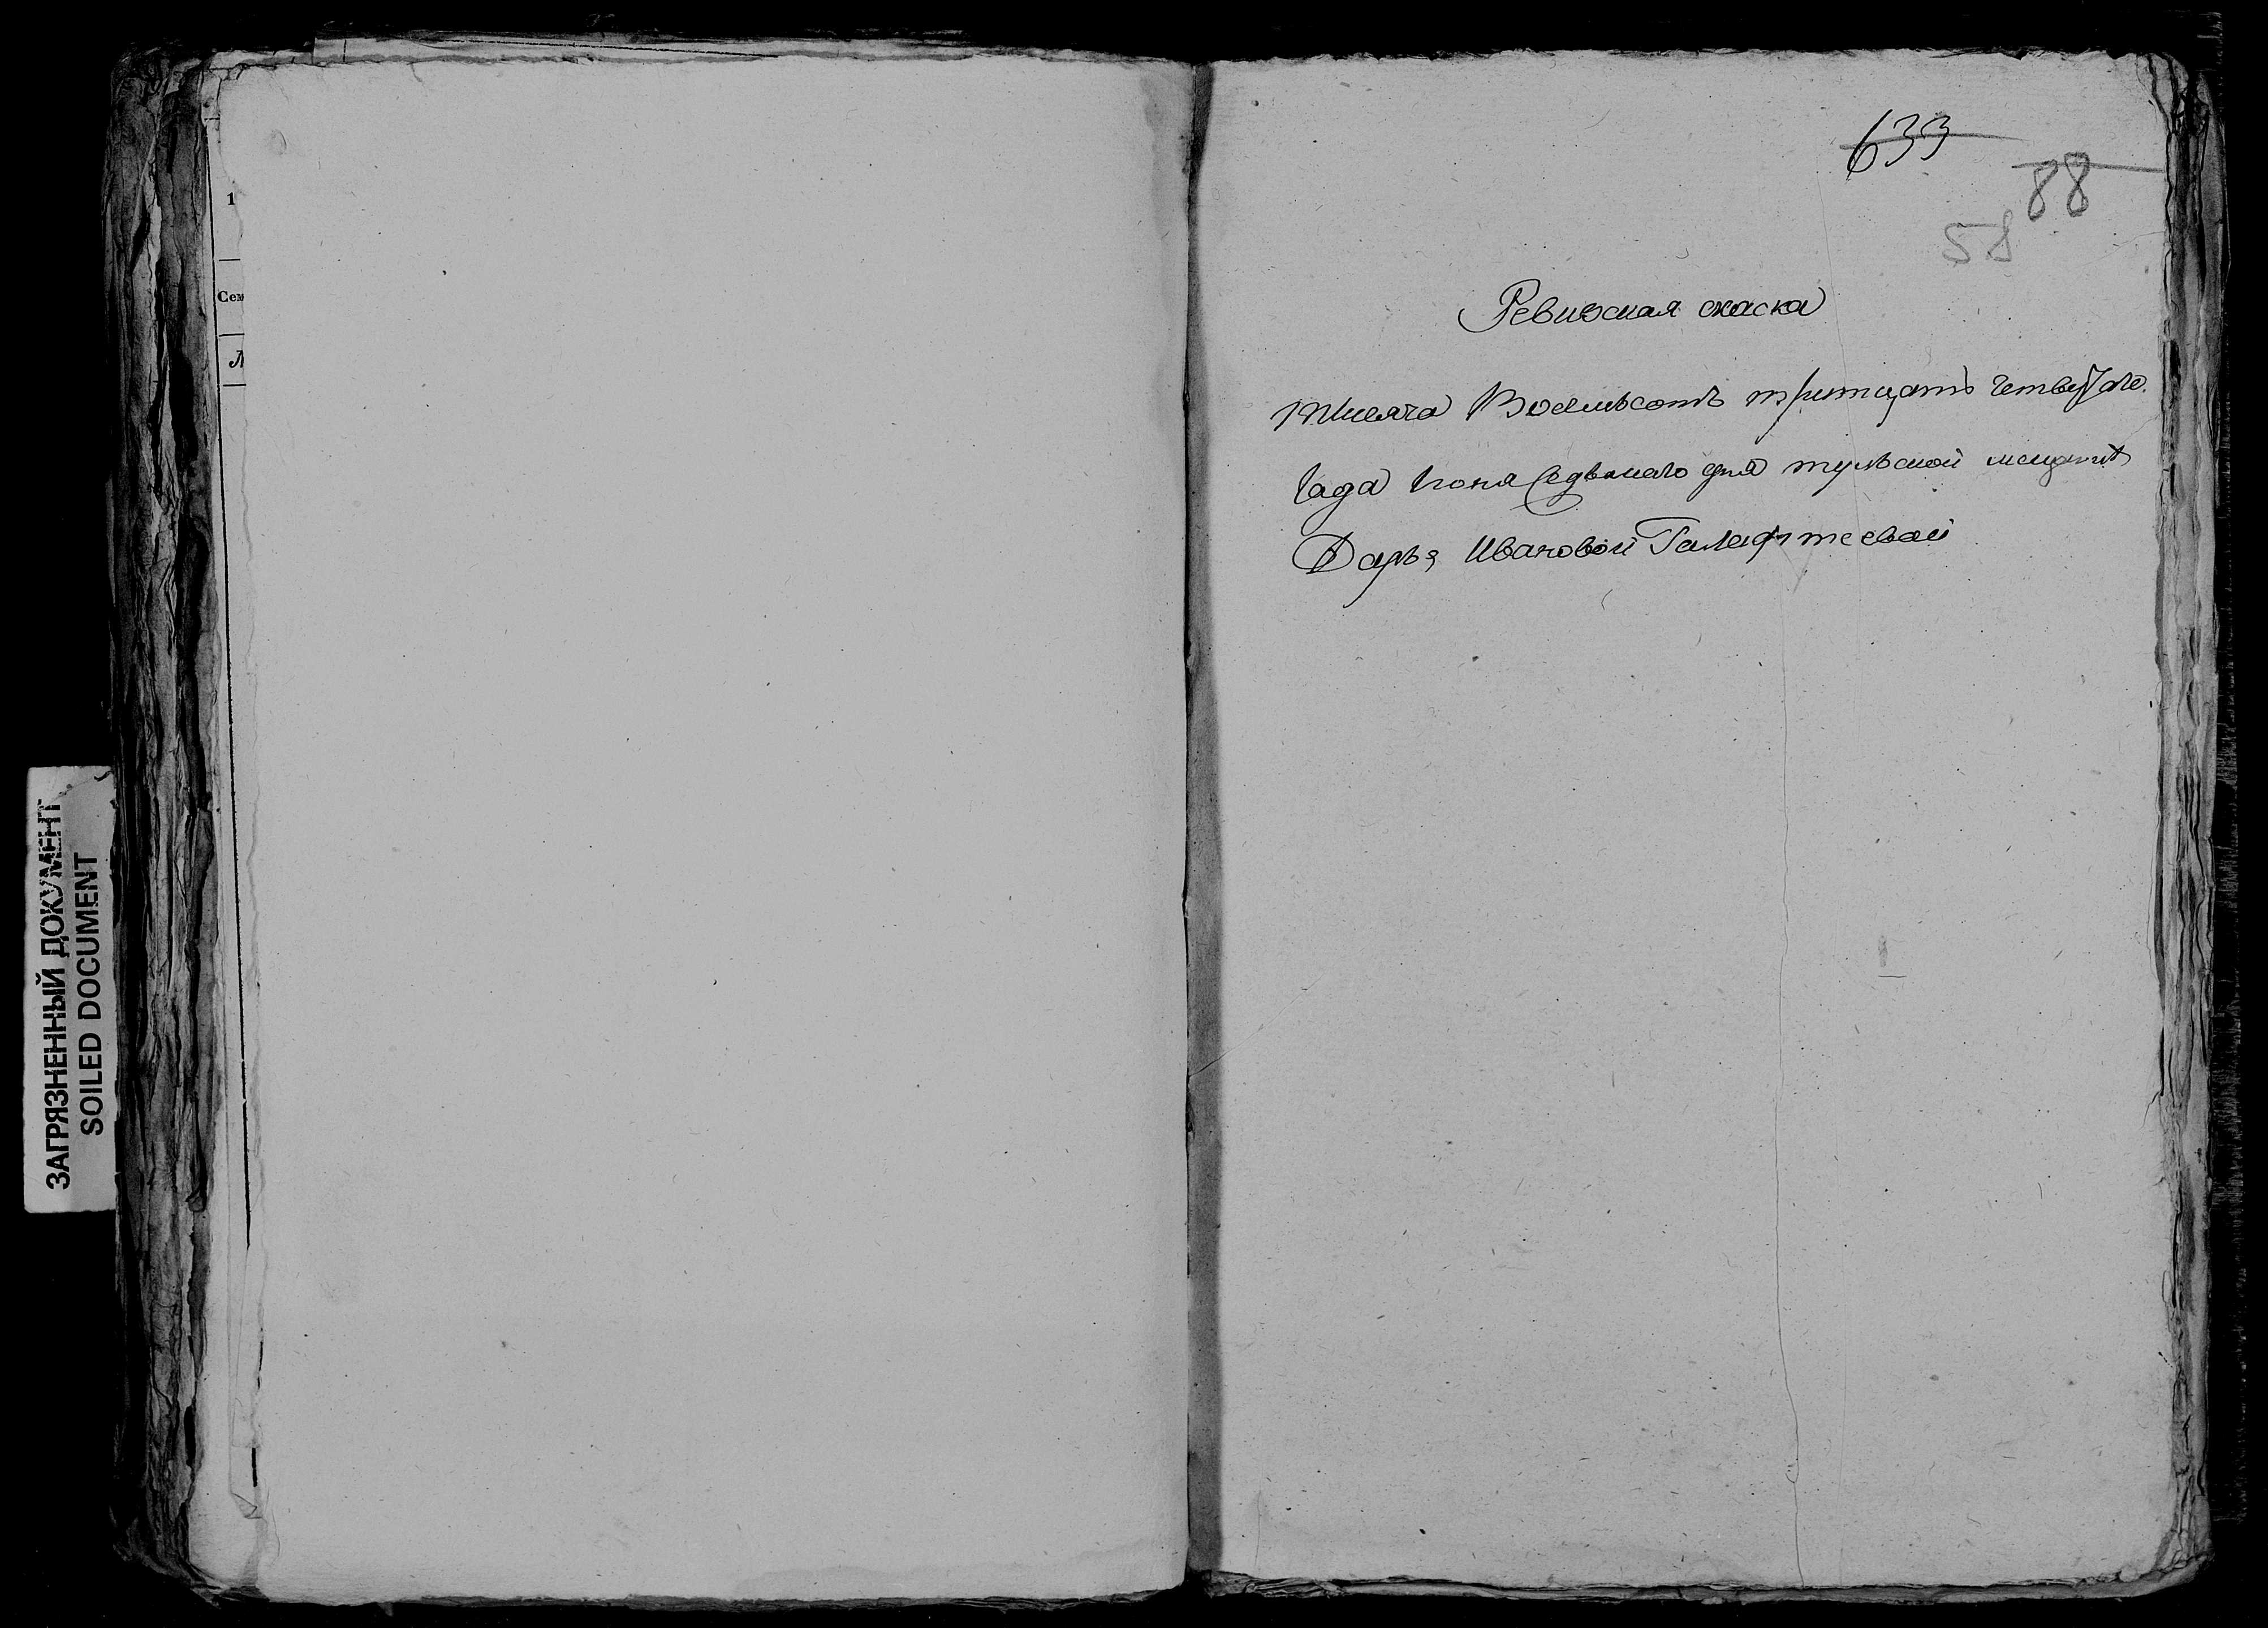 1
Сем
Л
ЗАГРЯЗНЕННЫЙ ДОКУМЕНТ
SOILED DOCUMENT
633
88
58
Ревизская скаска
тысяча Восемьсотъ тритцать четвертаго
года июня седьмаго дня тульской мещанки
Дарьи Ивановой Галафтеевай